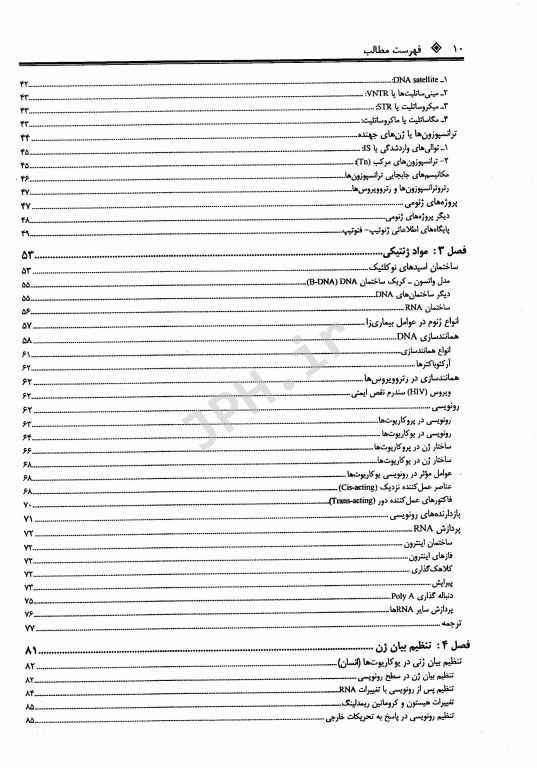 ۱۰ ❖ فهرست مطالب
۱ـ DNA satellite: ۴۲
۲ـ مینی‌ساتلیت‌ها یا VNTR: ۴۳
۳ـ میکروساتلیت یا STR: ۴۳
۴ـ مگاساتلیت یا ماکروساتلیت: ۴۳
ترانسپوزون‌ها یا ژن‌های جهنده ۴۴
۱ـ توالی‌های واردشدگی یا IS: ۴۵
۲- ترانسپوزون‌های مرکب (Tn): ۴۵
مکانیسم‌های جابجایی ترانسپوزون‌ها ۴۶
رتروترانسپوزون‌ها و رتروویروس‌ها ۴۷
پروژه‌های ژنومی ۴۷
دیگر پروژه‌های ژنومی ۴۸
پایگاه‌های اطلاعاتی ژنوتیپ- فنوتیپ ۴۹
فصل ۳ : مواد ژنتیکی ۵۳
ساختمان اسیدهای نوکلئیک ۵۳
مدل واتسون ـ کریک ساختمان DNA (B-DNA) ۵۵
دیگر ساختمان‌های DNA ۵۵
ساختمان RNA ۵۶
انواع ژنوم در عوامل بیماری‌زا ۵۷
همانندسازی DNA ۵۸
انواع همانندسازی ۶۱
آرکئوباکترها ۶۲
همانندسازی در رتروویروس‌ها ۶۲
ویروس (HIV) سندرم نقص ایمنی ۶۲
رونویسی ۶۲
رونویسی در پروکاریوت‌ها ۶۳
رونویسی در یوکاریوت‌ها ۶۴
ساختار ژن در پروکاریوت‌ها ۶۶
ساختار ژن در یوکاریوت‌ها ۶۸
عوامل مؤثر در رونویسی یوکاریوت‌ها ۶۸
عناصر عمل‌کننده نزدیک (Cis-acting) ۶۸
فاکتورهای عمل‌کننده دور (Trans-acting) ۷۰
بازدارنده‌های رونویسی ۷۱
پردازش RNA ۷۲
ساختمان اینترون ۷۲
فازهای اینترون ۷۲
کلاهک‌گذاری ۷۲
پیرایش ۷۳
دنباله گذاری Poly A ۷۵
پردازش سایر RNAها ۷۶
ترجمه ۷۷
فصل ۴ : تنظیم بیان ژن ۸۱
تنظیم بیان ژنی در یوکاریوت‌ها (انسان) ۸۲
تنظیم بیان ژن در سطح رونویسی ۸۲
تنظیم پس از رونویسی با تغییرات RNA ۸۴
تغییرات هیستون و کروماتین ریمدلینگ ۸۵
تنظیم رونویسی در پاسخ به تحریکات خارجی ۸۵
JPH.ir